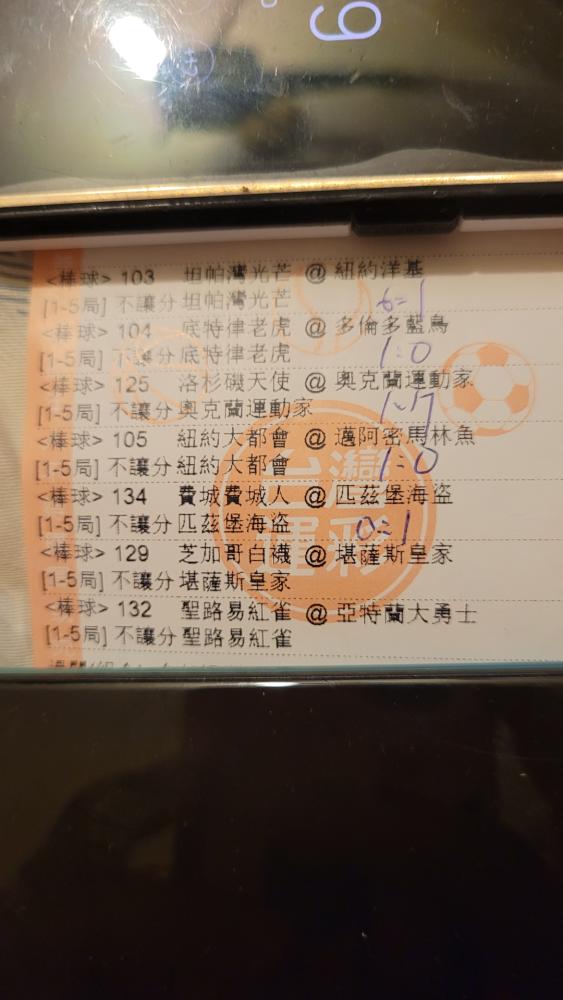 9
<棒球> 103 坦帕灣光芒 @ 紐約洋基
[1-5局] 不讓分 坦帕灣光芒 6=1
<棒球> 104 底特律老虎 @ 多倫多藍鳥
[1-5局] 不讓分 底特律老虎 1:0
<棒球> 125 洛杉磯天使 @ 奧克蘭運動家
[1-5局] 不讓分 奧克蘭運動家 1~7
<棒球> 105 紐約大都會 @ 邁阿密馬林魚
[1-5局] 不讓分 紐約大都會 1:0
<棒球> 134 費城費城人 @ 匹茲堡海盜
[1-5局] 不讓分 匹茲堡海盜 0=1
<棒球> 129 芝加哥白襪 @ 堪薩斯皇家
[1-5局] 不讓分 堪薩斯皇家
<棒球> 132 聖路易紅雀 @ 亞特蘭大勇士
[1-5局] 不讓分 聖路易紅雀
台灣
運彩